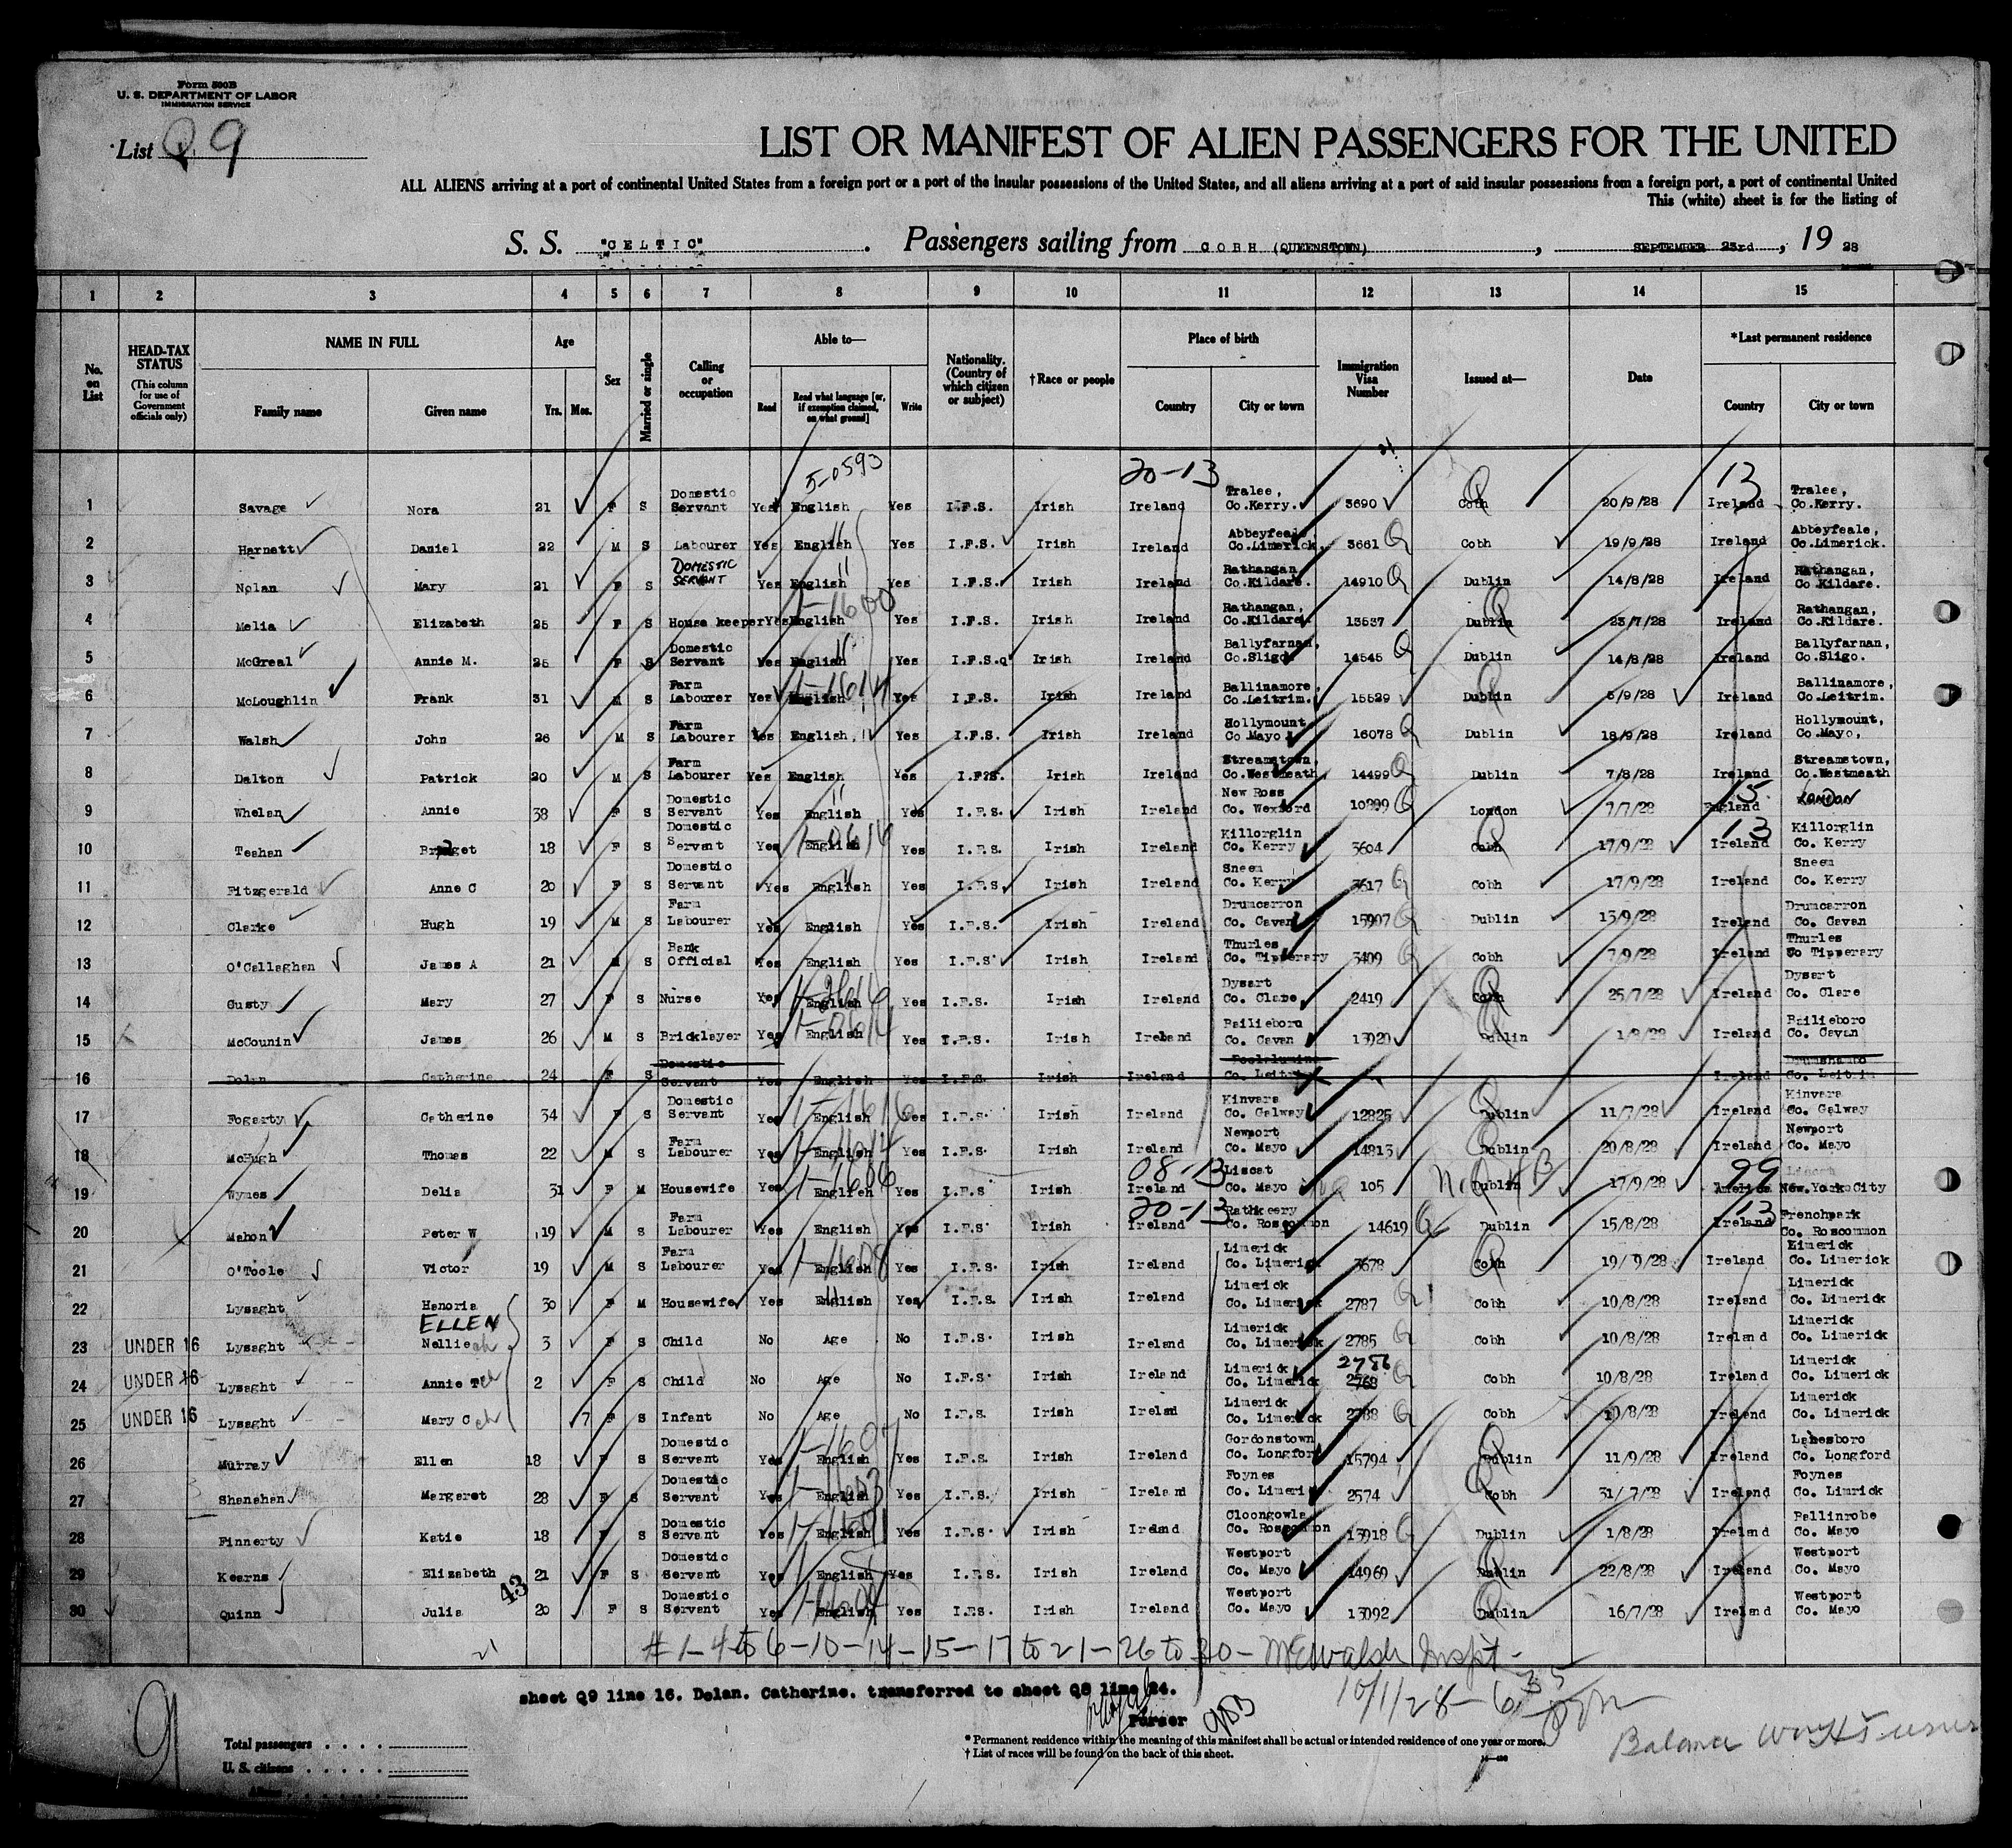 Form 500B
U. S. DEPARTMENT OF LABOR
IMMIGRATION SERVICE
List Q 9
LIST OR MANIFEST OF ALIEN PASSENGERS FOR THE UNITED
ALL ALIENS arriving at a port of continental United States from a foreign port or a port of the insular possessions of the United States, and all aliens arriving at a port of said insular possessions from a foreign port, a port of continental United
This (white) sheet is for the listing of
S. S. "CELTIC". Passengers sailing from COBH (QUEENSTOWN), SEPTEMBER 23rd, 19 28
1 2 3 4 5 6 7 8 9 10 11 12 13 14 15
No. on List
HEAD-TAX STATUS (This column for use of Government officials only)
NAME IN FULL Family name Given name
Age Yrs. Mos.
Sex
Married or single
Calling or occupation
Able to— Read Read what language [or, if exemption claimed, on what ground] Write
Nationality. (Country of which citizen or subject)
†Race or people
Place of birth Country City or town
Immigration Visa Number
Issued at—
Date
*Last permanent residence Country City or town
5-0593 20-13 13
1 Savage Nora 21 F S Domestic Servant Yes English Yes I.F.S. Irish Ireland Tralee, Co.Kerry. 3690 Cobh 20/9/28 Ireland Tralee, Co.Kerry.
2 Harnett Daniel 22 M S Labourer Yes English Yes I.F.S. Irish Ireland Abbeyfeale Co.Limerick. 3661 Q Cobh 19/9/28 Ireland Abbeyfeale, Co.Limerick.
3 Nolan Mary 21 F S DOMESTIC SERVANT Yes English Yes I.F.S. Irish Ireland Rathangan Co.Kildare. 14910 Q Dublin 14/8/28 Ireland Rathangan, Co.Kildare.
4 Melia Elizabeth 25 F S House keeper Yes English Yes I.F.S. Irish Ireland Rathangan, Co.Kildare. 13537 Dublin 23/7/28 Ireland Rathangan, Co.Kildare.
5 McGreal Annie M. 25 F S Domestic Servant Yes English Yes I.F.S. Irish Ireland Ballyfarnan, Co.Sligo. 14545 Q Dublin 14/8/28 Ireland Ballyfarnan, Co.Sligo.
6 McLoughlin Frank 31 M S Farm Labourer Yes English Yes I.F.S. Irish Ireland Ballinamore, Co.Leitrim. 15529 Dublin 5/9/28 Ireland Ballinamore, Co.Leitrim.
7 Walsh John 26 M S Farm Labourer Yes English Yes I.F.S. Irish Ireland Hollymount Co Mayo. 16078 Q Dublin 18/9/28 Ireland Hollymount, Co.Mayo,
8 Dalton Patrick 20 M S Farm Labourer Yes English Yes I.F.S. Irish Ireland Streamstown, Co.Westmeath, 14499 Q Dublin 7/8/28 Ireland Streamstown, Co.Westmeath
9 Whelan Annie 38 F S Domestic Servant Yes English Yes I.F.S. Irish Ireland New Ross Co. Wexford 10899 Q London 7/7/28 England LONDON
10 Teahan Bridget 18 F S Domestic Servant Yes English Yes I.F.S. Irish Ireland Killorglin Co. Kerry 3604 Cobh 17/9/28 Ireland Killorglin Co. Kerry
11 Fitzgerald Anne C 20 F S Domestic Servant Yes English Yes I.F.S. Irish Ireland Sneem Co. Kerry 3617 Q Cobh 17/9/28 Ireland Sneem Co. Kerry
12 Clarke Hugh 19 M S Farm Labourer Yes English Yes I.F.S. Irish Ireland Drumcarron Co. Cavan 15907 Q Dublin 13/9/28 Ireland Drumcarron Co. Cavan
13 O'Callaghan James A 21 M S Bank Official Yes English Yes I.F.S. Irish Ireland Thurles Co. Tipperary 3409 Q Cobh 7/9/28 Ireland Thurles Co Tipperary
14 Gusty Mary 27 F S Nurse Yes English Yes I.F.S. Irish Ireland Dysart Co. Clare, 2419 Cobh 25/7/28 Ireland Dysart Co. Clare
15 McCounin James 26 M S Bricklayer Yes English Yes I.F.S. Irish Ireland Bailieboro Co. Cavan 13020 Dublin 1/8/28 Ireland Bailieboro Co. Cavan
16 Dolan Catherine 24 F S Domestic Servant Yes English Yes I.F.S. Irish Ireland Co. Leitrim Ireland Co. Leitrim
17 Fogarty Catherine 34 F S Domestic Servant Yes English Yes I.F.S. Irish Ireland Kinvara Co. Galway 12825 Dublin 11/7/28 Ireland Kinvara Co. Galway
18 McHugh Thomas 22 M S Farm Labourer Yes English Yes I.F.S. Irish Ireland Newport Co. Mayo 14813 Dublin 20/8/28 Ireland Newport Co. Mayo
08-13 99
19 Wynes Delia 31 F M Housewife Yes English Yes I.F.S Irish Ireland Liscat Co. Mayo 105 Dublin 17/9/28 America New York City
20-13 13
20 Mahon Peter W 19 M S Farm Labourer Yes English Yes I.F.S. Irish Ireland Rathkeery Co. Roscommon 14619 Q Dublin 15/8/28 Ireland Frenchpark Co. Roscommon
21 O'Toole Victor 19 M S Farm Labourer Yes English Yes I.F.S. Irish Ireland Limerick Co. Limerick 3678 Cobh 19/9/28 Ireland Limerick Co. Limerick
22 Lysaght Hanoria 30 F M Housewife Yes English Yes I.F.S. Irish Ireland Limerick Co. Limerick 2787 Q Cobh 10/8/28 Ireland Limerick Co. Limerick
ELLEN
23 UNDER 16 Lysaght Nellie 3 F S Child No Age No I.F.S. Irish Ireland Limerick Co. Limerick 2785 Q Cobh 10/8/28 Ireland Limerick Co. Limerick
24 UNDER 16 Lysaght Annie T 2 F S Child No Age No I.F.S. Irish Ireland Limerick Co. Limerick 2786 2768 Q Cobh 10/8/28 Ireland Limerick Co. Limerick
25 UNDER 16 Lysaght Mary C 7 F S Infant No Age No I.F.S. Irish Irelnd Limerick Co. Limerick 2788 Q Cobh 10/8/28 Ireland Limerick Co. Limerick
26 Murray Ellen 18 F S Domestic Servant Yes English Yes I.F.S. Irish Ireland Gordonstown Co. Longford 15794 Dublin 11/9/28 Ireland Lanesboro Co. Longford
27 Shanahan Margaret 28 F S Domestic Servant Yes English Yes I.F.S. Irish Ireland Foynes Co. Limeri 2574 Cobh 31/7/28 Ireland Foynes Co. Limrick
28 Finnerty Katie 18 F S Domestic Servant Yes English Yes I.F.S. Irish Irelnd Cloongowla Co. Roscommon 13918 Q Dublin 1/8/28 Ireland Ballinrobe Co. Mayo
29 Kearns Elizabeth 21 F S Domestic Servant Yes English Yes I.F.S. Irish Ireland Westport Co. Mayo 14969 Dublin 22/8/28 Ireland Westport Co. Mayo
43
30 Quinn Julia 20 F S Domestic Servant Yes English Yes I.F.S. Irish Ireland Westport Co. Mayo 13092 Dublin 16/7/28 Ireland Westport Co. Mayo
# 1-4 to 6-10-14-15-17 to 21-26 to 30- McEwalsh Inspt-
10/1/28-6 35 pm
sheet Q9 line 16. Dolan. Catherine. transferred to sheet Q8 line 24.
Purser
9
Total passengers
U. S. citizens
* Permanent residence within the meaning of this manifest shall be actual or intended residence of one year or more.
† List of races will be found on the back of this sheet.
Balance